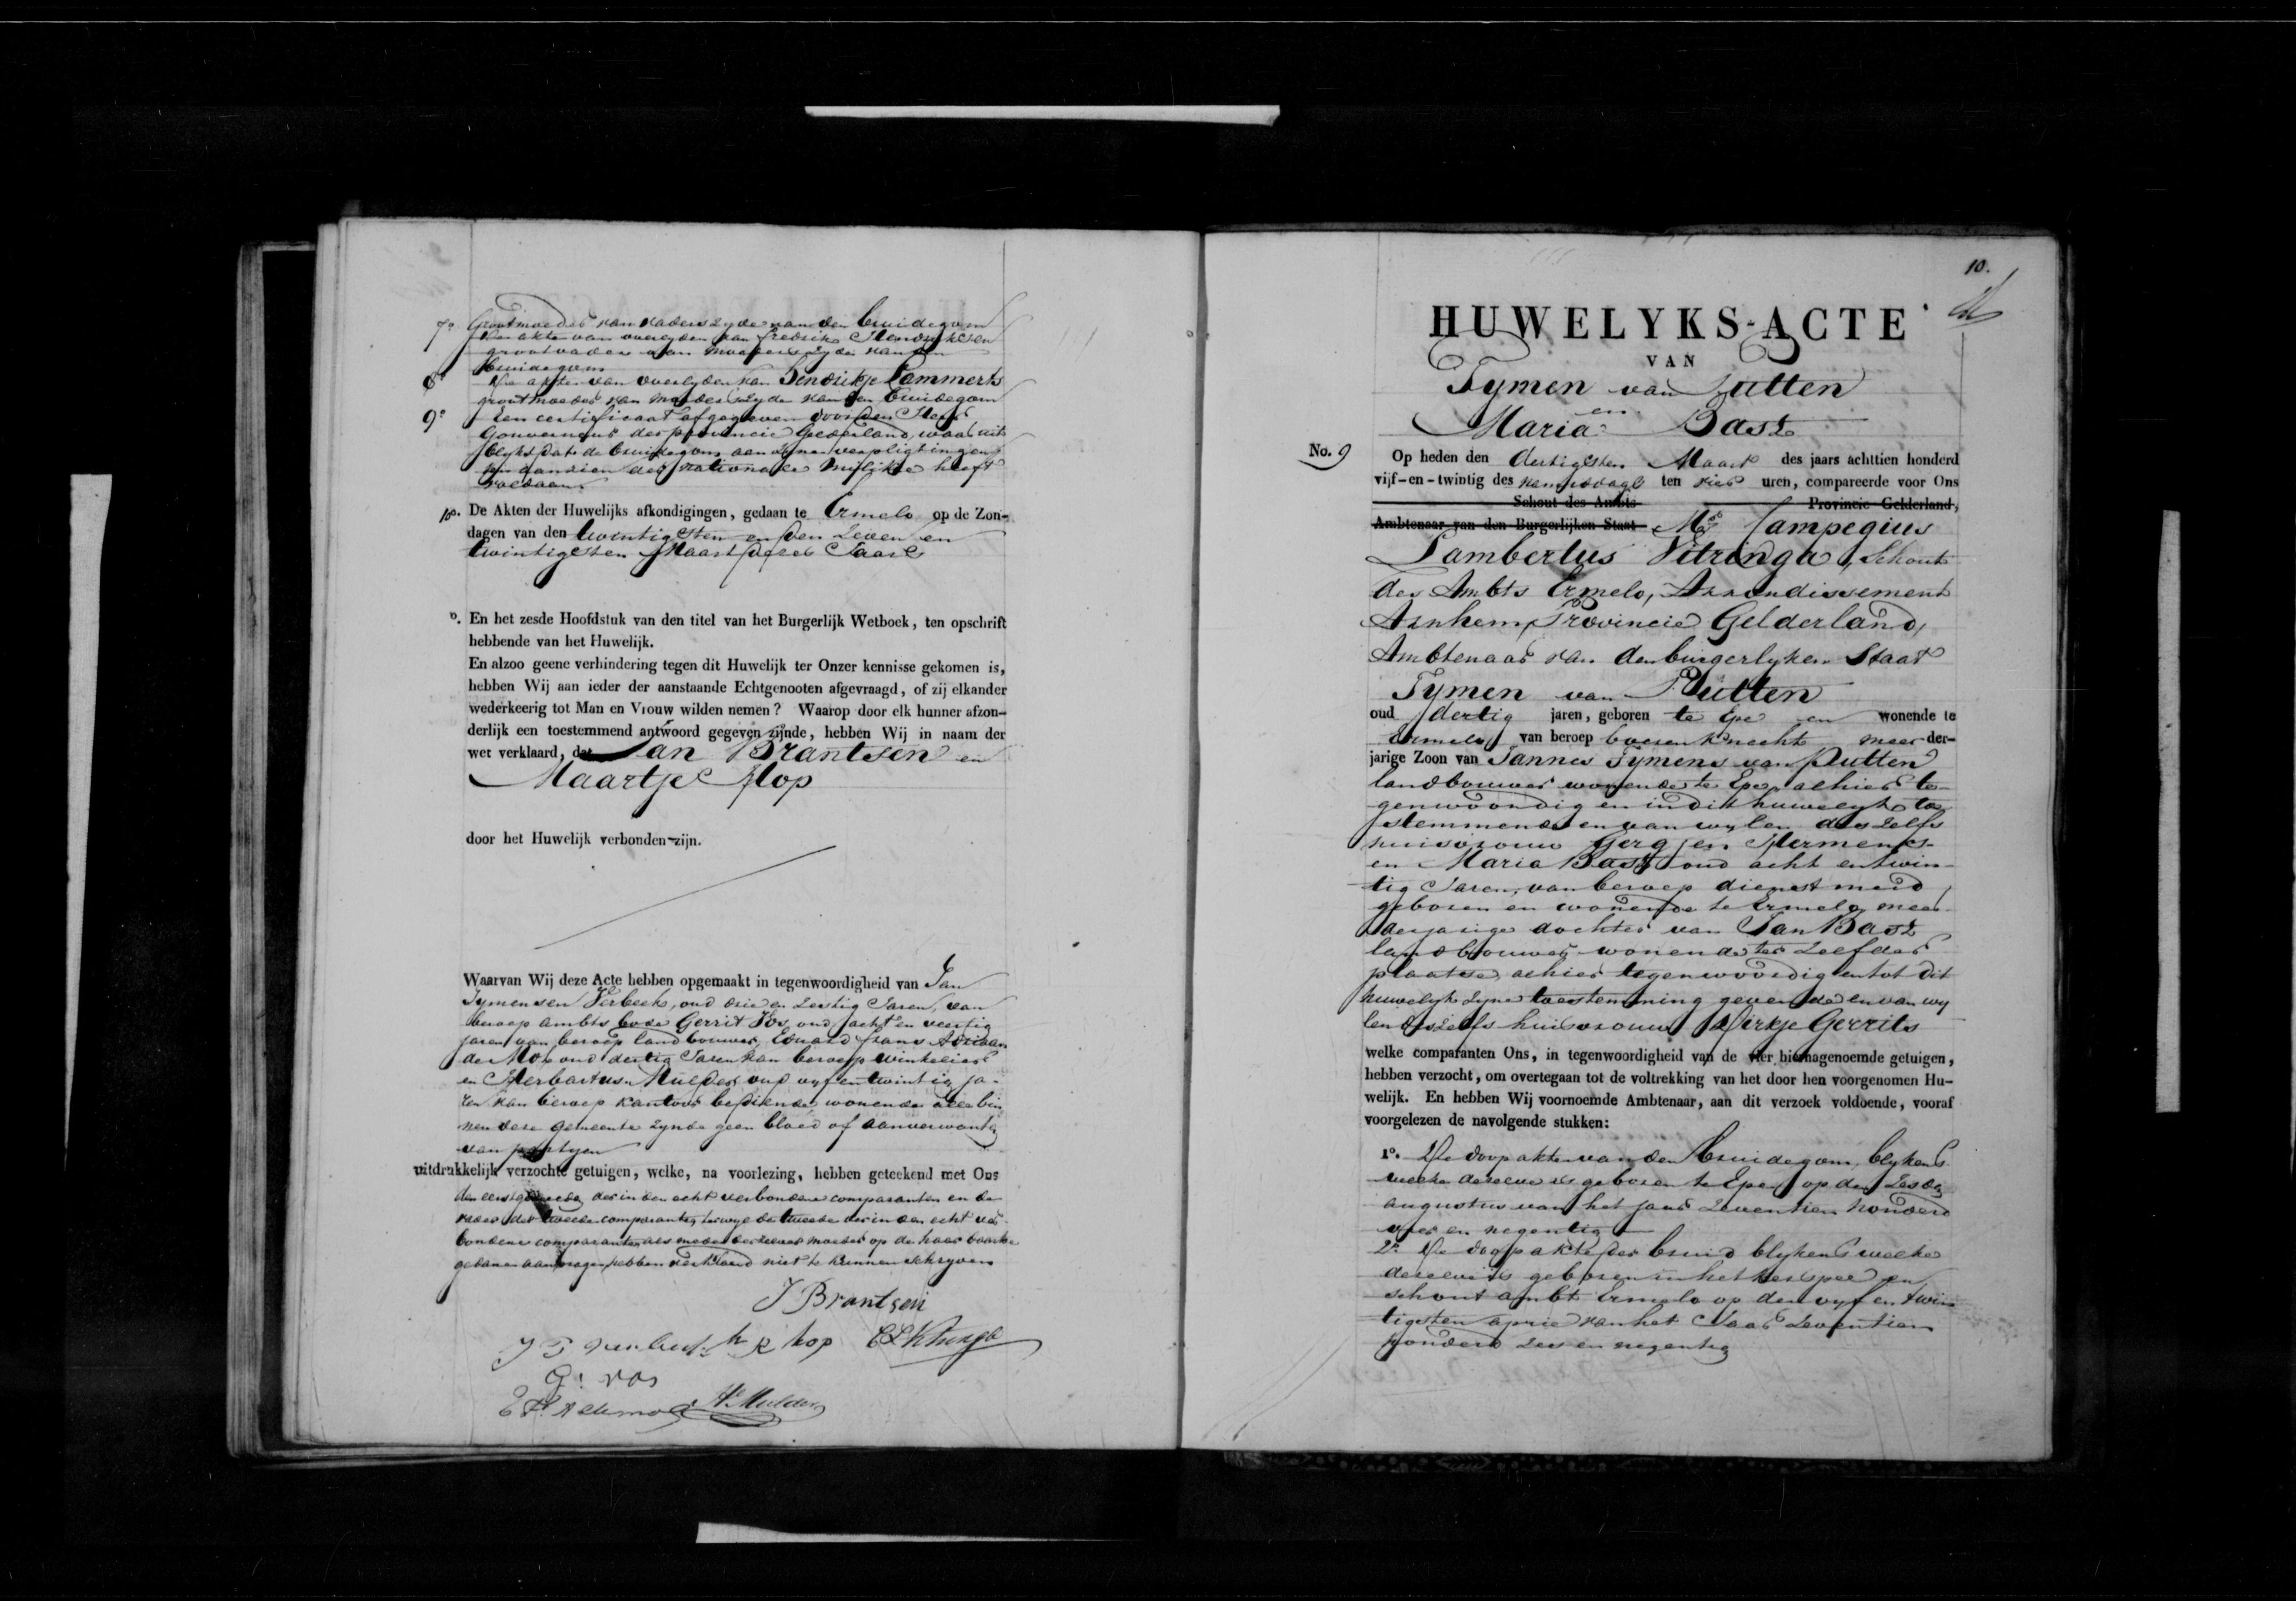 Grootmoeder van vaders zyde van den bruidegom
7o. De akte van overlyden van Fredrik Hendriksen
grootvader van moeders zyde van den
bruidegom
8o De akte van overlyden van Hendrikje Lammerts
grootmoeder van moeders zyde van den bruidegom
9o Een certificaat afgegeven door den Heer
Gouverneur der provincie Gelderland, waar uit
blykt dat de bruidegom aan zyne verpligtingen
ten aanzien der nationale Militie heeft
voldaan.
10o. De Akten der Huwelijks afkondigingen, gedaan te Ermelo op de Zon-
dagen van den twintigsten en den zeven en
twintigsten Maart dezes Jaars
o. En het zesde Hoofdstuk van den titel van het Burgerlijk Wetboek, ten opschrift
hebbende van het Huwelijk.
En alzoo geene verhindering tegen dit Huwelijk ter Onzer kennisse gekomen is,
hebben Wij aan ieder der aanstaande Echtgenooten afgevraagd, of zij elkander
wederkeerig tot Man en Vrouw wilden nemen? Waarop door elk hunner afzon-
derlijk een toestemmend antwoord gegeven zijnde, hebben Wij in naam der
wet verklaard, dat Jan Brantsen en
Maartje Hop
door het Huwelijk verbonden zijn.
Waarvan Wij deze Acte hebben opgemaakt in tegenwoordigheid van Jan
Tymensen Verbeek, oud drie en zestig Jaren, van
beroep ambts bode Gerrit Vos, oud acht en veertig
jaren van beroep landbouwer, Eduard Frans Adriaan
de Mol oud dertig Jaren van beroep winkelier
en Herbartus Mulder, oud vyf en twintig ja-
ren van beroep kantoor bediende wonende alle bin
nen deze gemeente zynde geen bloed of aanverwanten
van partyen
uitdrukkelijk verzochte getuigen, welke, na voorlezing, hebben geteekend met Ons
den eerstgemelde der in den echt verbondene comparanten en de
vader der tweede comparante, terwyl de tweede der in den echt ver
bondene comparanten als mede derzelver moeder op de haar daartoe
gedane aanvragen hebben verklaard niet te kunnen schryven
J Brantsen
J T Verbeek h R hop
G: vos
H Mulder
10.
HUWELYKS-ACTE
VAN
Tymen van Putten
en
Maria Bast
No. 9 Op heden den dertigsten Maart des jaars achttien honderd
vijf-en-twintig des namiddags ten vier uren, compareerde voor Ons
Schout des Ambts Provincie Gelderland,
Ambtenaar van den Burgerlijken Staat Mr Campegius
Lambertus Vitringa, Schout
des Ambts Ermelo, Arrondissement
Arnhem, Provincie Gelderland,
Ambtenaar van den burgerlyken Staat
Tymen van Putten
oud dertig jaren, geboren te Epe en wonende te
Ermelo van beroep boeren knecht meer-der-
jarige Zoon van Jannes Tymens van Putten
landbouwer wonende te Epe, alhier te
genwoordig en in dit huwelyk toe
stemmende en van wylen des zelfs
huisvrouw Gergjen Hermens
en Maria Bast oud acht en twin
tig Jaren, van beroep dienstmeid
geboren en wonende te Ermelo, meer
derjarige dochter van Jan Bast
landbouwer wonende ter zelfder
plaatse, alhier tegenwoordig en tot dit
huwelyk zyne toestemming gevende en van wy
len deszelfs huisvrouw Dirkje Gerrits
welke comparanten Ons, in tegenwoordigheid van de vier hiernagenoemde getuigen,
hebben verzocht, om overtegaan tot de voltrekking van het door hen voorgenomen Hu-
welijk. En hebben Wij voornoemde Ambtenaar, aan dit verzoek voldoende, vooraf
voorgelezen de navolgende stukken:
1o. De doop akte van den bruidegom, blykens
welke dezelve is geboren te Epe op den zesden
augustus van het jaar zeventien honderd
vier en negentig
2o. De doop akte der bruid blykens welke
dezelve is geboren in het kerspel en
schout ambt Ermelo op den vyf en twin
tigsten april van het Jaar zeventien
honderd zes en negentig